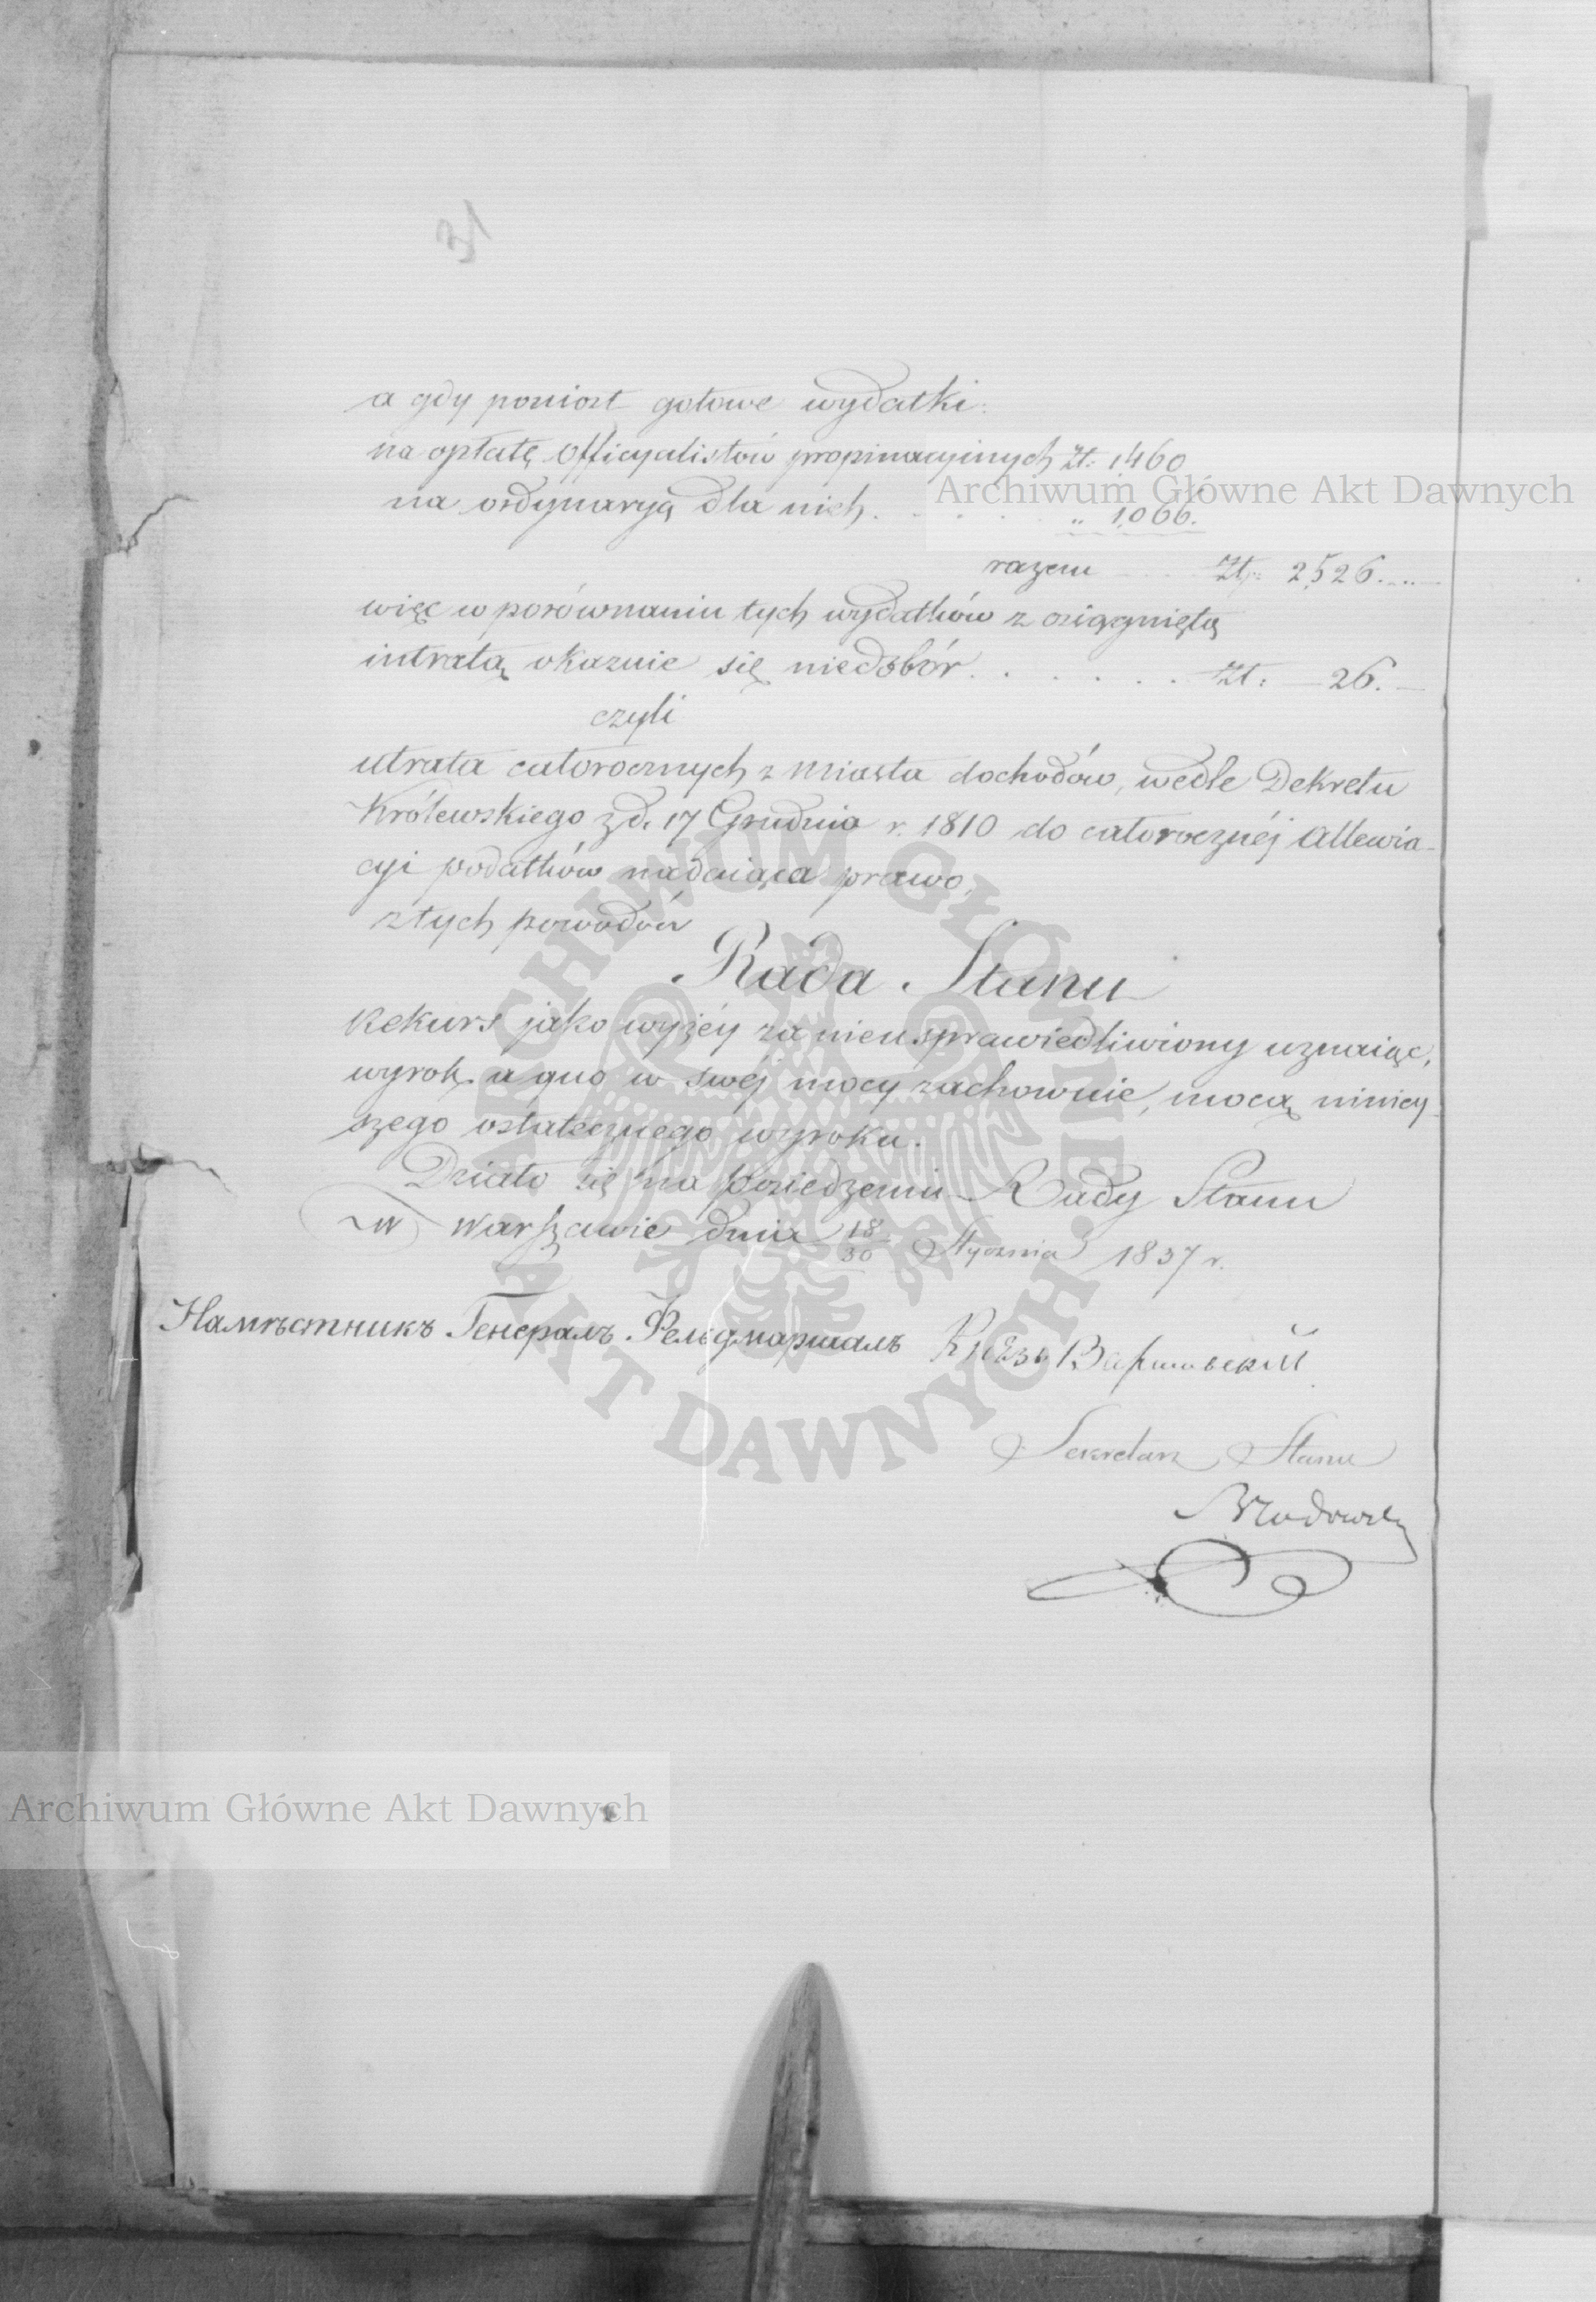 31
a gdy poniosł gotowe wydatki:
na opłatę Officyalistów propinacyjnych Zł: 1460
na ordynaryą dla nich . . . . . „ 1,066.
razem Zł: 2,526.
więc w porównaniu tych wydatków z osiągniętą
intratą okazuie się niedobór . . . . . . Zł: 26.
czyli
utrata całorocznych z miasta dochodów, wedle Dekretu
Królewskiego z d. 17 Grudnia r. 1810 do całorocznéj Allewia-
cyi podatków nadaiąca prawo,
z tych powodów
Rada Stanu
Rekurs jako wyżéy za nieusprawiedliwiony uznaiąc,
wyrok a quo w swéj mocy zachowuie, mocą niniey-
szego ostatecznego wyroku.
Działo się na posiedzeniu Rady Stanu
w Warszawie dnia 18/30 Stycznia 1837 r.
Намѣстникъ Генералъ Фельдмаршалъ Князь Варшавскій
Sekretarz Stanu
Archiwum Główne Akt Dawnych
ARCHIWUM GŁÓWNE AKT DAWNYCH
Archiwum Główne Akt Dawnych